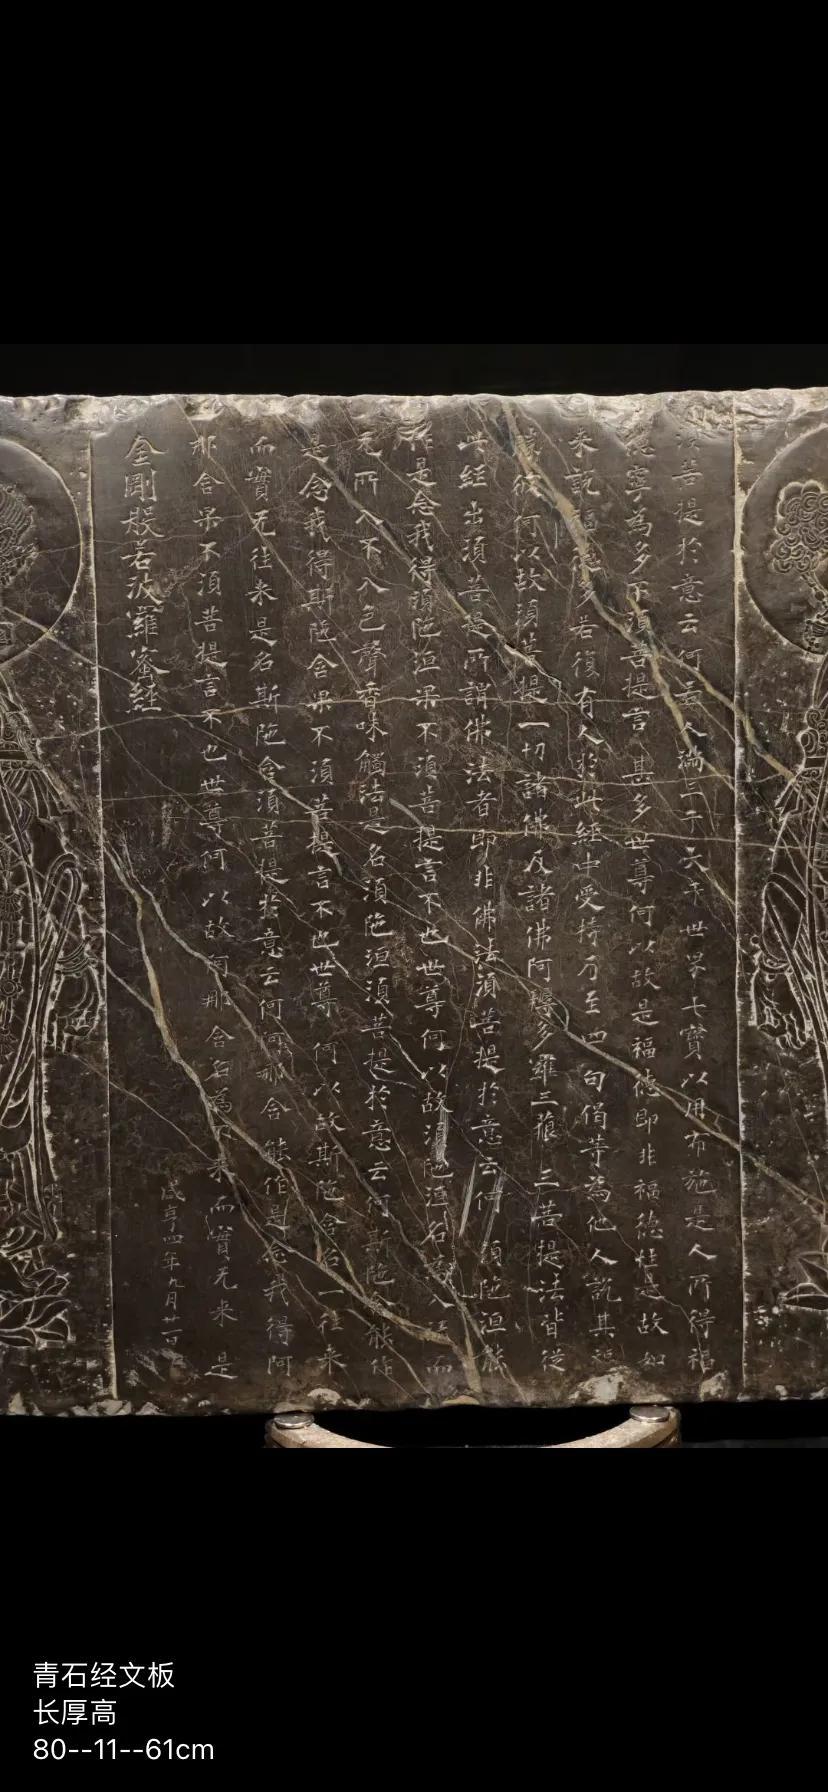 須菩提於意云何若人滿三千大千世界七寶以用布施是人所得福
德寧為多不須菩提言甚多世尊何以故是福德即非福德性是故如
来說福德多若復有人於此經中受持乃至四句偈等為他人說其
彼何以故須菩提一切諸佛及諸佛阿耨多羅三藐三菩提法皆従
此經出須菩提所謂佛法者即非佛法須菩提於意云何須陁洹能
作是念我得須陁洹果不須菩提言不也世尊何以故須陁洹名為入流而
无所入不入色聲香味觸法是名須陁洹須菩提於意云何斯陁含能作
是念我得斯陁含果不須菩提言不也世尊何以故斯陁含名一往来
而實无往来是名斯陁含須菩提於意云何阿那含能作是念我得阿
那含果不須菩提言不也世尊何以故阿那含名為不来而實无来是
金剛般若波羅蜜經
咸亨四年九月廿一日
青石经文板
长厚高
80--11--61cm